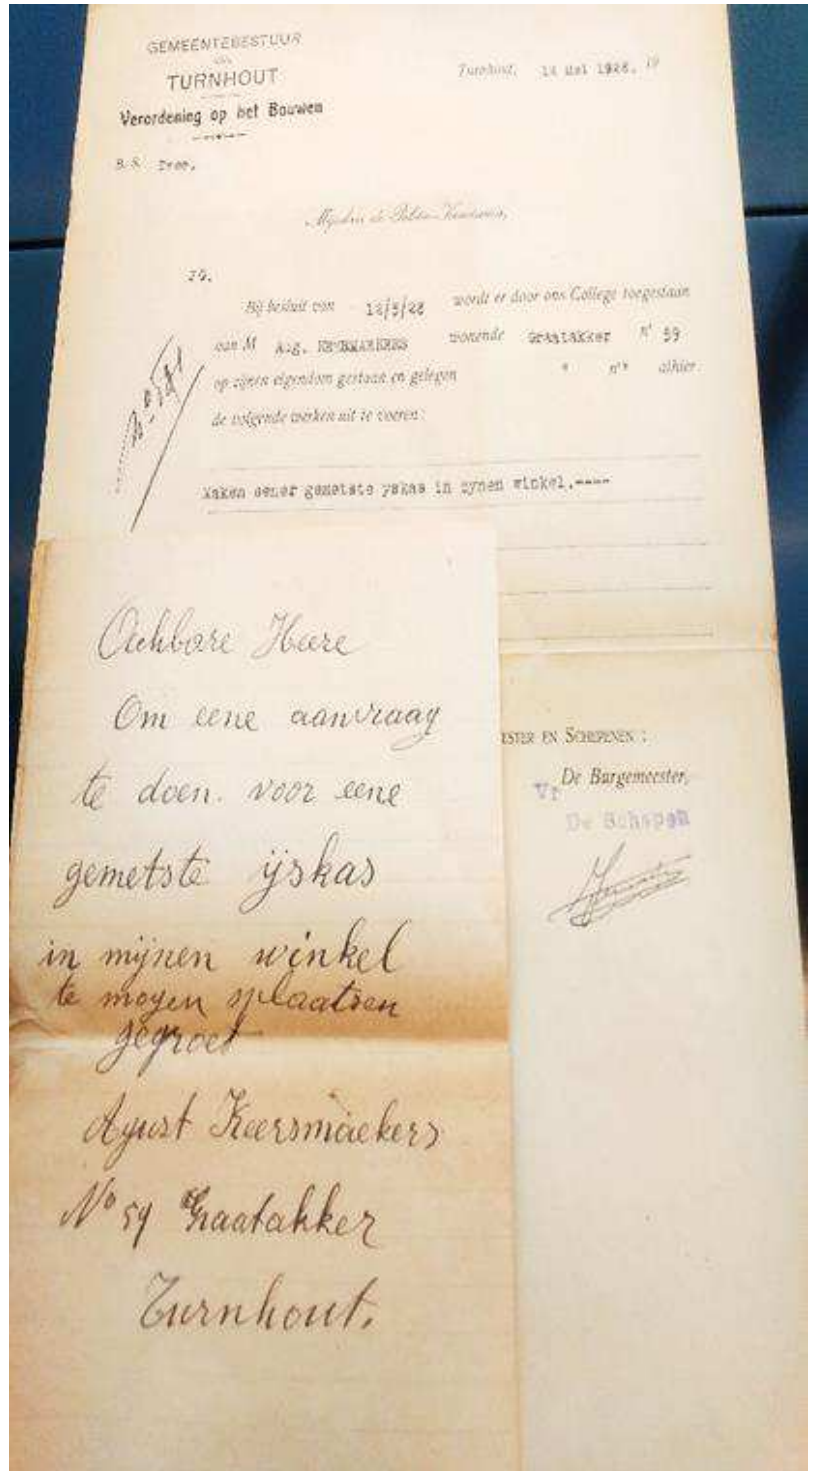 GEMEENTEBESTUUR
VAN
TURNHOUT
Verordening op het Bouwen
Turnhout, 14 Mei 1928. 19
B. S. Tree.
Mijnheer de Politie-Commissaris,
Bij besluit van 12/5/28 wordt er door ons College toegestaan
aan M Aug. KEERSMAEKERS wonende Graatakker nr 59
op zijnen eigendom gestaan en gelegen " nrs alhier.
de volgende werken uit te voeren:
Maken eener gemetste yskas in zynen winkel.----
ESTER EN SCHEPENEN :
De Burgemeester,
Vr
De Schepen
Achbare Heere
Om eene aanvraag
te doen. voor eene
gemetste ijskas
in mijnen winkel
te mogen plaatsen
gegroet
Agust Keersmaekers
No 59 Graatakker
Turnhout.